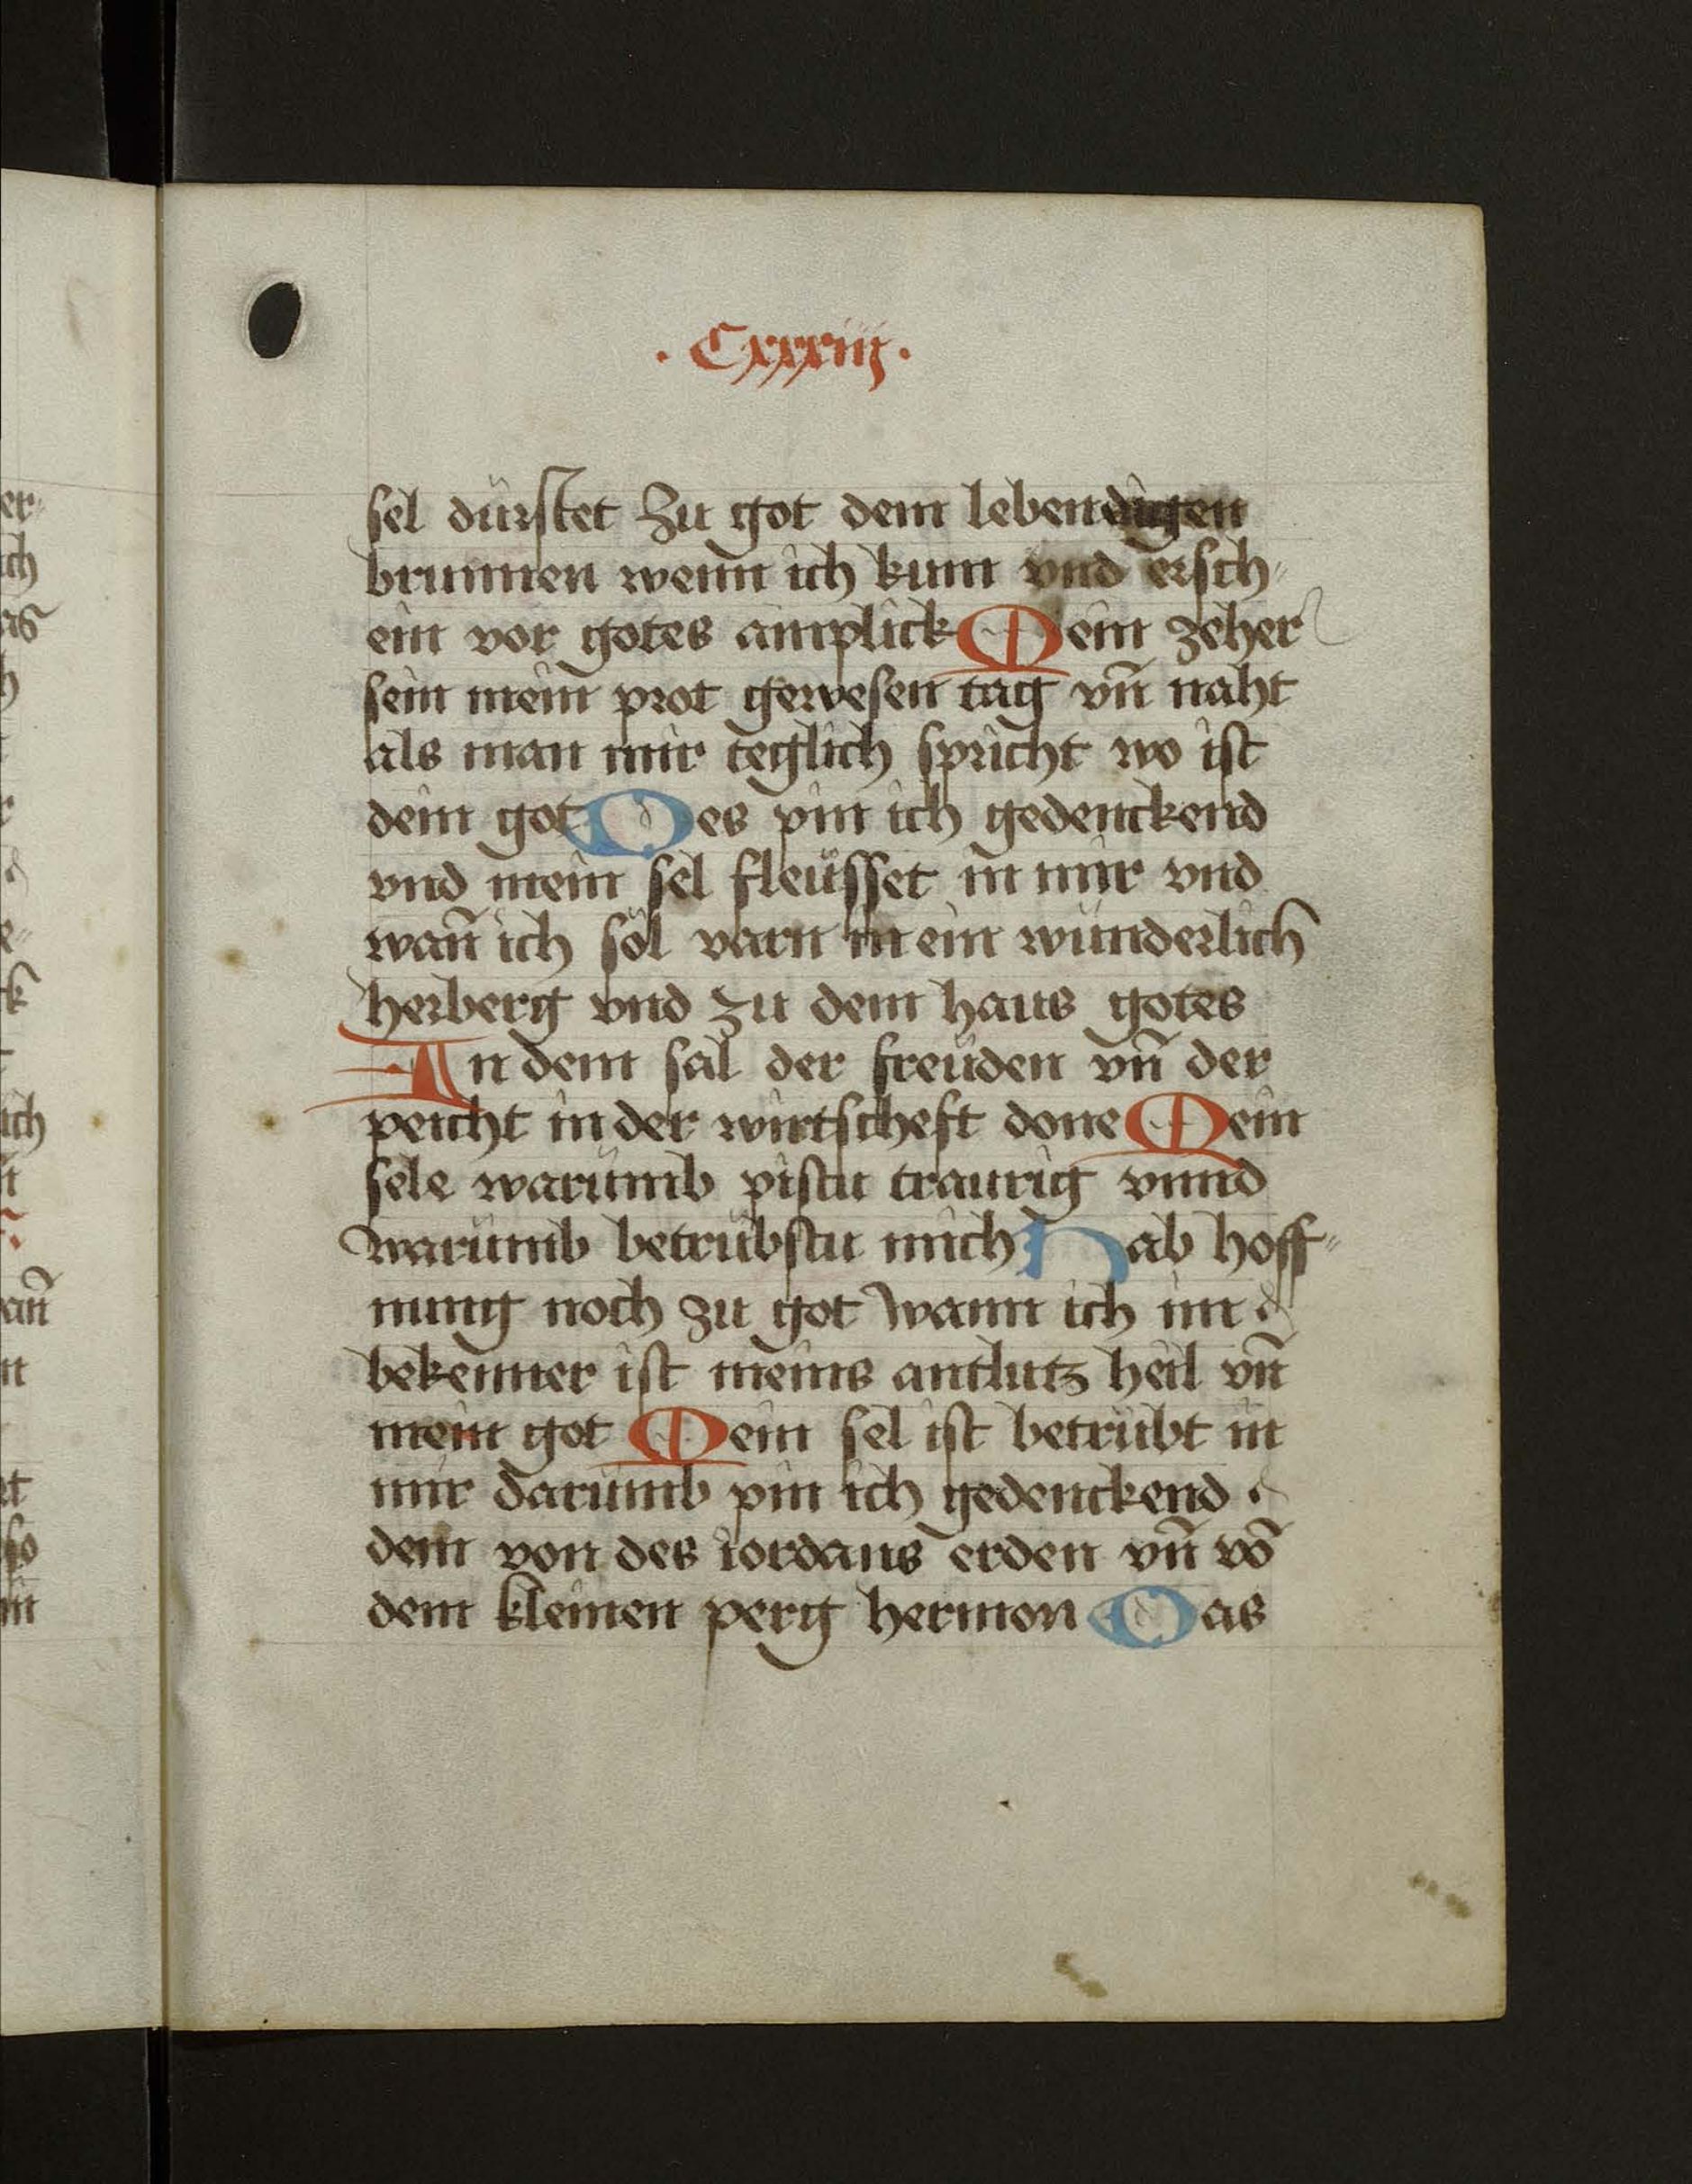 · Cxxxiij ·
sel dürstet Zu got dem lebendigen
brunnen wenn ich kum vnd ersch⸗
ein vor gotes antplick Mein zeher
sein mein prot gewesen tag vn̄ naht
als man mir teglich spricht wo ist
dein got Des pin ich gedenckend
vnd mein sel fleüsset in mir vnd
wan̄ ich sol varn in ein wünderlich
herberg vnd zu dem haus gotes
In dem sal der freüden vn̄ der
peicht in der wirtscheft done Mein
sele warümb pistu traurig vnnd
warümb betrübstu mich Hab hoff⸗
nung noch zu got wann ich im
bekenner ist meins antlutz heil vn̄
mein got Mein sel ist betrübt in
mir darümb pin ich gedenckend
dein von des iordans erden vn̄ vō
dem kleinen perg hermon Das